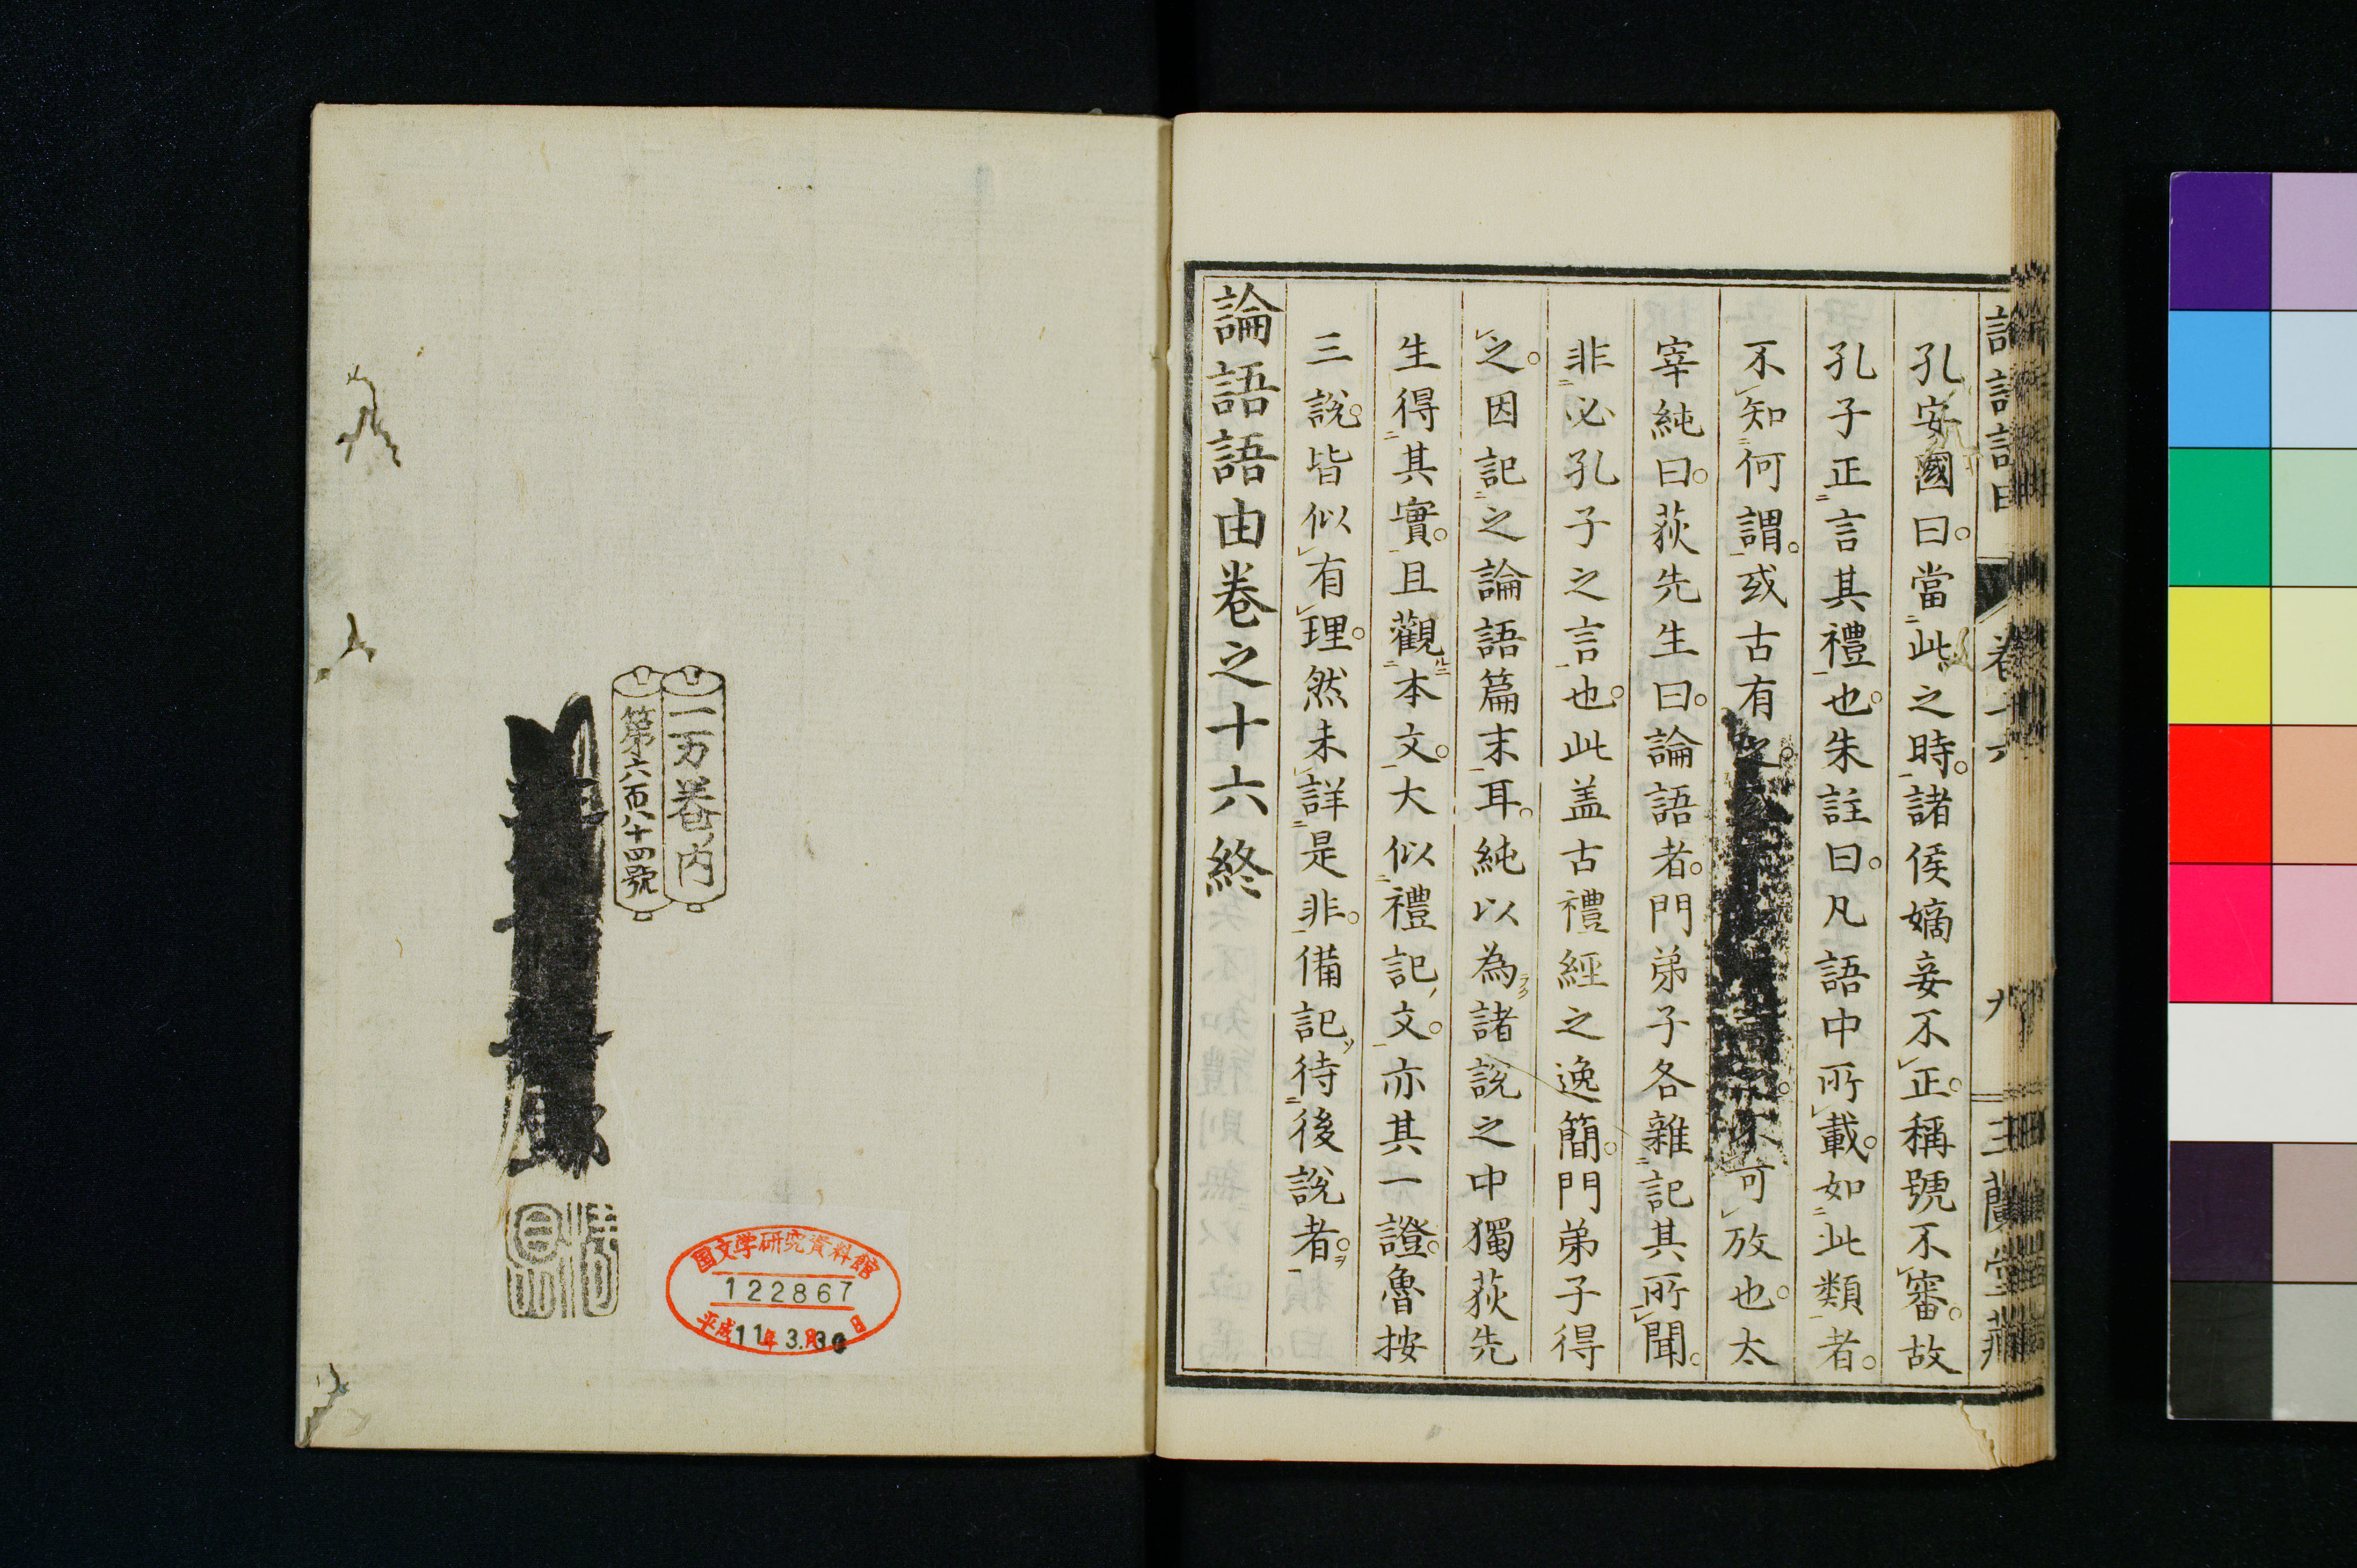 孔安國曰。當此之時。諸侯嫡妾不正。稱號不審。故
孔子正言其禮也。朱註曰。凡語中所載。如此類者。
不知何謂。或古有之。不可放也。太
宰純曰。荻先生曰。論語者。門弟子各雜記其所聞。
非必孔子之言也。此盖古禮經之逸簡。門弟子得
之。因記之論語篇末耳。純以為諸說之中獨荻先
生得其實。且觀本文。大似禮記文。亦其一證。魯按
三說。皆似有理。然未詳是非。備記待後說者。
論語語由卷之十六終
二万卷内
第六百八十四號
国文学研究資料館
122867
平成11年3.月30日